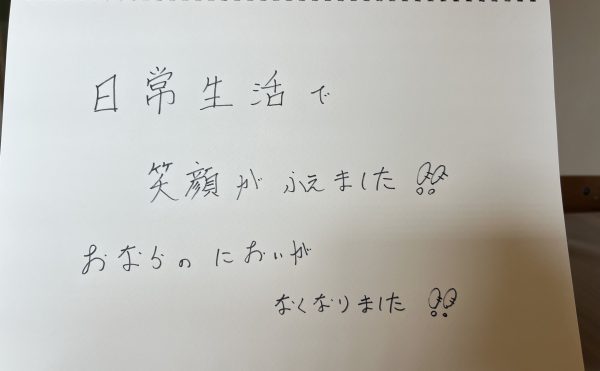 日常生活で
笑顔がふえました!!
おならのにおいが
なくなりました!!